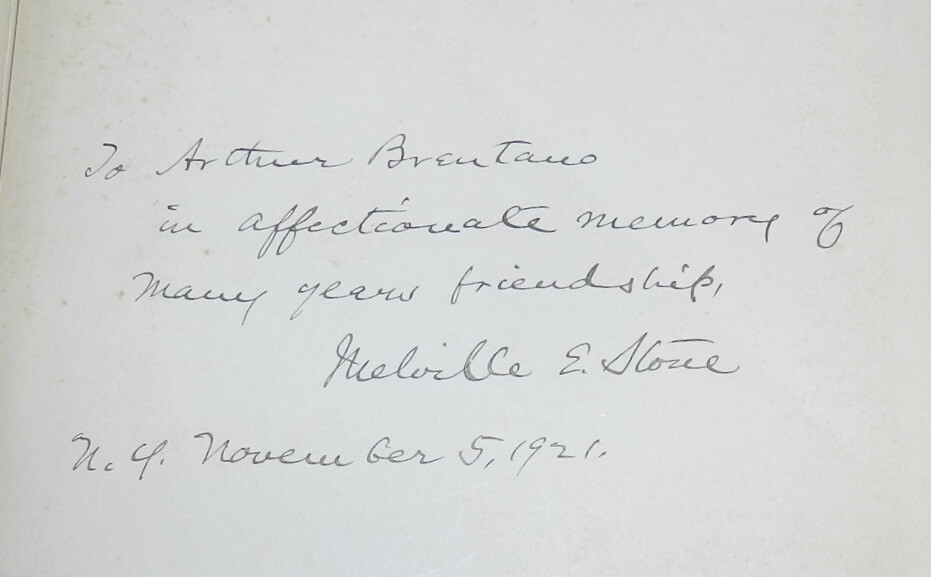 To Arthur Brentano
in affectionate memory of
many years friendship,
Melville E. Stone
N.Y. November 5, 1921.